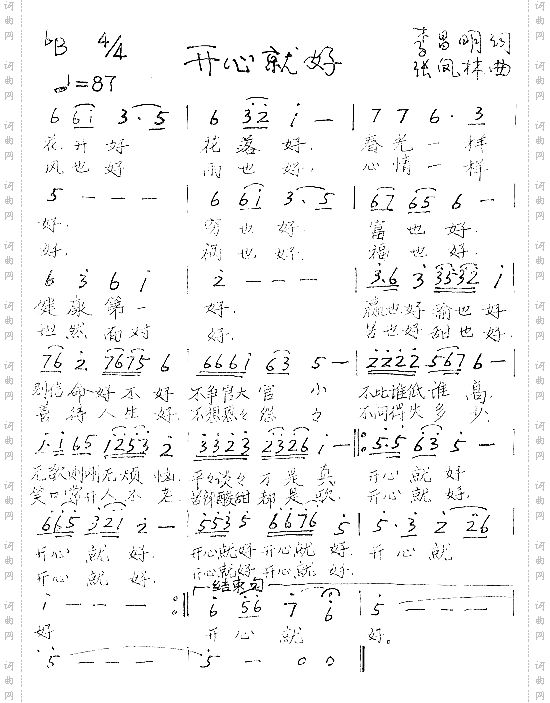 ♭B 4/4 开心就好 李昌明词
♩=87 张凤林曲
6 6i 3·5 | 6 32 i — | 7 7 6· 3
花开好 花落好, 春光一样
风也好 雨也好, 心情一样
5 — — — | 6 6i 3·5 | 67 65 6 —
好. 穷也好. 富也好.
好. 祸也好. 福也好.
6 3 6 i | 2 — — — | 3·6 3 3532 i
健康第一 好. 赢也好输也好
坦然面对 好. 苦也好甜也好.
76 2. 7675 6 | 6661 63 5 — | 2222 567 6 —
命好不好 不争官大官小 不比谁低谁高,
善待人生好. 不问得失多少
i·i 65 i253 2 | 3323 2326 i — | 5·5 63 5 —
无欲则刚无烦恼. 平々淡々才是真 开心就好
笑口常开人不老. 苦辣酸甜都是歌 开心就好.
665 321 2 — | 5535 6676 5 | 5·3 2 26
开心就好. 开心就好开心就好. 开心就
开心就好. 开心就好开心就好.
结束句
i — — — | 6 56 7 6 | 5 — — —
好 开心就 好。
5 — — — | 5 — 0 0
词曲网
词曲网
词曲网
词曲网
词曲网
词曲网
词曲网
词曲网
词曲网
词曲网
词曲网
词曲网